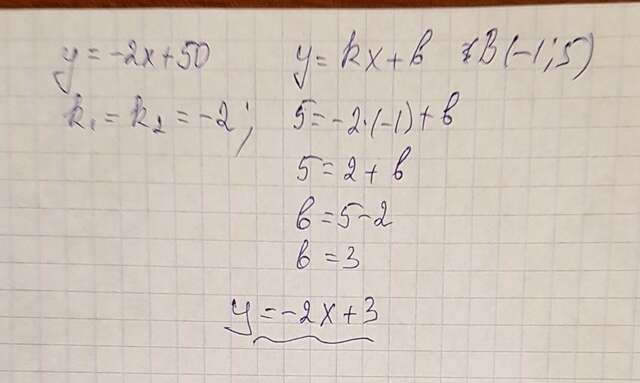 y = -2x + 50    y = kx + b    B(-1; 5)
k₁ = k₂ = -2;    5 = -2·(-1) + b
5 = 2 + b
b = 5 - 2
b = 3
y = -2x + 3